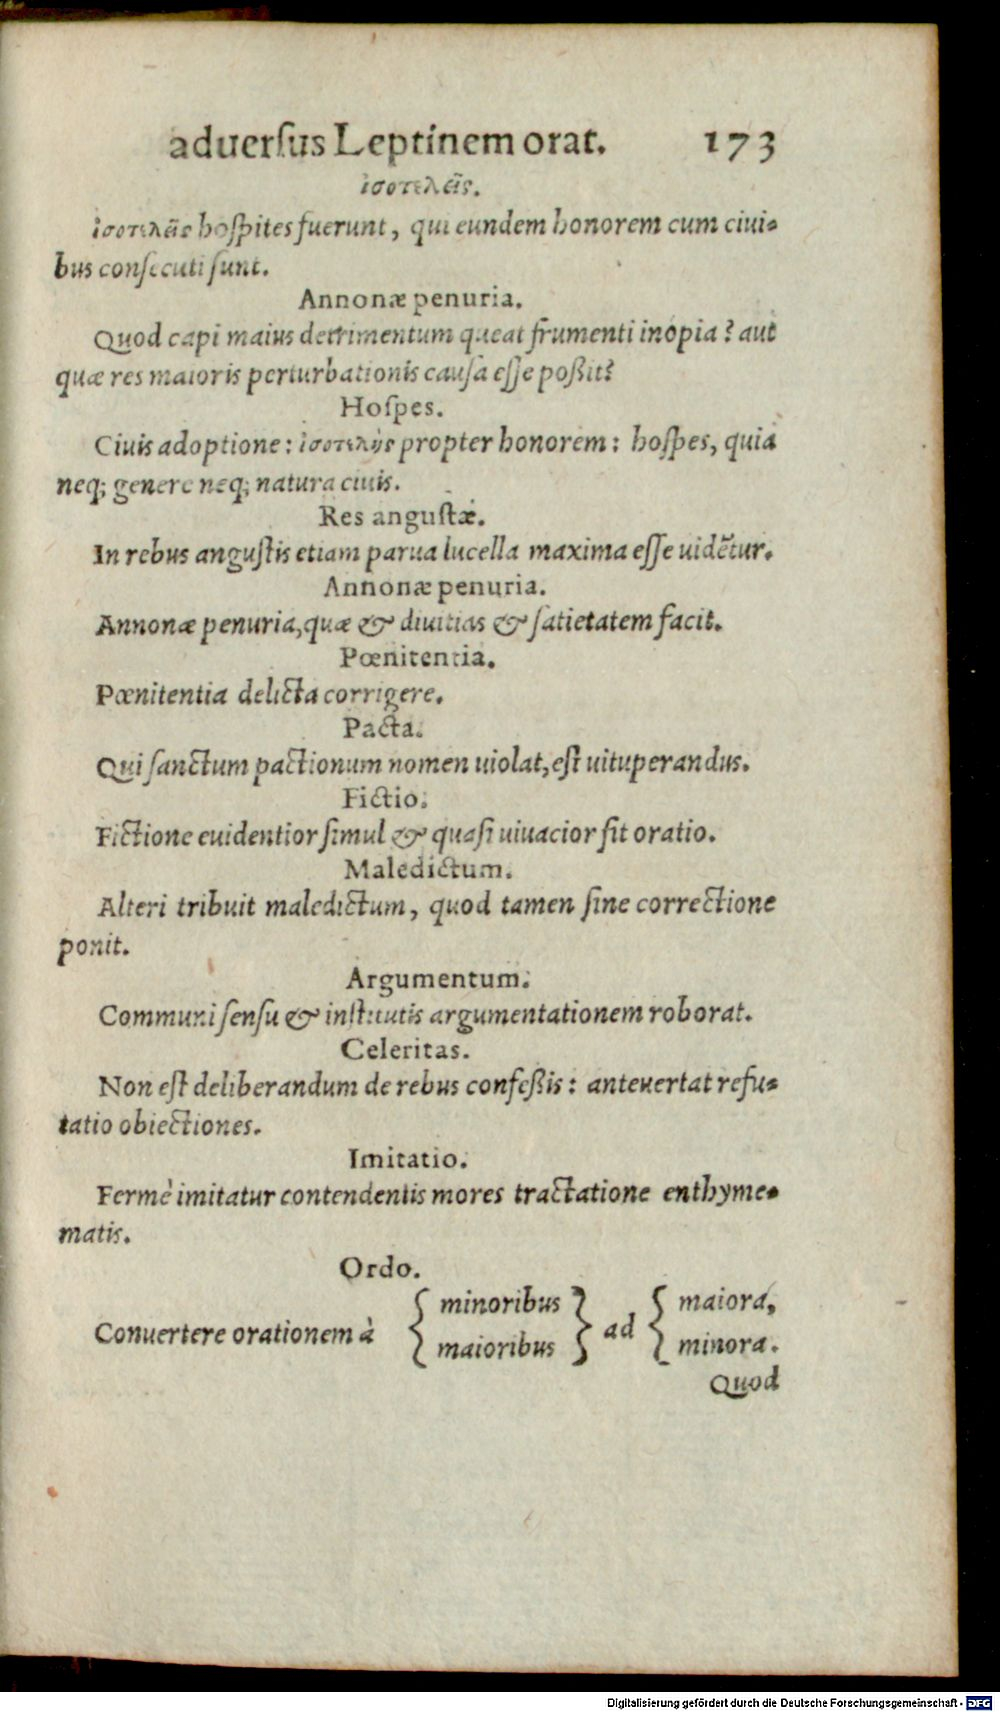 aduersus Leptinem orat. 173
ἰσοτελεῖς.
ἰσοτελεῖς hoſpites fuerunt, qui eundem honorem cum ciui-
bus conſecuti ſunt.
Annonæ penuria.
Quod capi maius detrimentum queat frumenti inopia? aut
quæ res maioris perturbationis cauſa eſſe poßit?
Hoſpes.
Ciuis adoptione: ἰσοτελὴς propter honorem: hoſpes, quia
neq; genere neq; natura ciuis.
Res anguſtæ.
In rebus anguſtis etiam parua lucella maxima eſſe uidẽtur.
Annonæ penuria.
Annonæ penuria, quæ & diuitias & ſatietatem facit.
Pœnitentia.
Pœnitentia delicta corrigere.
Pacta.
Qui ſanctum pactionum nomen uiolat, eſt uituperandus.
Fictio.
Fictione euidentior ſimul & quaſi uiuacior fit oratio.
Maledictum.
Alteri tribuit maledictum, quod tamen ſine correctione
ponit.
Argumentum.
Communi ſenſu & inſtitutis argumentationem roborat.
Celeritas.
Non eſt deliberandum de rebus confeßis: antevertat refu-
tatio obiectiones.
Imitatio.
Fermè imitatur contendentis mores tractatione enthyme-
matis.
Ordo.
Conuertere orationem à { minoribus } ad { maiora,
maioribus minora.
Quod
Digitalisierung gefördert durch die Deutsche Forschungsgemeinschaft - DFG